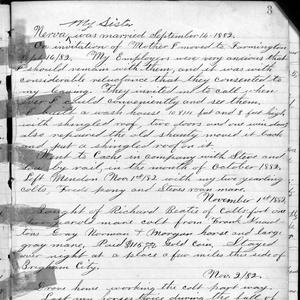 3
My Sister
Nerva, was married September 14. 1882.
On invitation of Mother I moved to Farmington
16/82. My Employers were very anxious that
I should remain with them, and it was with
considerable reluctance that they consented to
my leaving. They invited me to call when
ever I could conveniently and see them.
a wash house 10 x 14 feet and 8 feet high
with shingled roof, two doors and one window
also repaired the old shanty moved it back
and put a shingled roof on it.
Went to Cache in company with Steve and
by rail, in the month of October 1882,
Left Mendon Nov 1st 82 with my two yearling
colts, Fred's pony and Steve's roan mare.
November 1st 1882,
Bought of Richard Beatie of Calls fort one
two year old mare colt
Gray Norman & Morgan horse and large
gray mare, Paid $115 Gold Coin, Stayed
over night at a place a few miles this side of
Brigham City.
Nov. 2/82.
Drove home working the colt part way